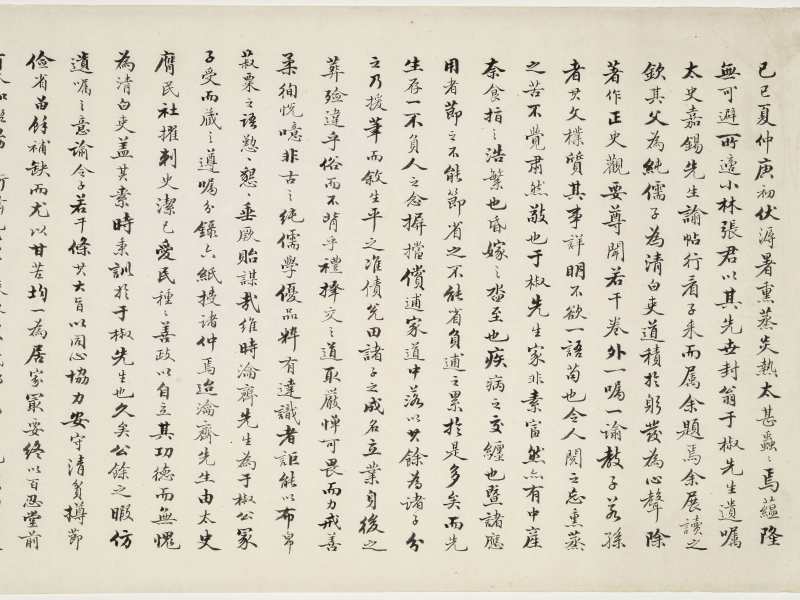 己巳夏仲庚初伏溽暑熏蒸炎熱太甚蟲〻焉蘊隆
無可避所適小林張君以其先世封翁于椒先生遺囑
太史嘉錫先生諭帖行看子來而属余題焉余展讀之
欽其父為純儒子為清白吏道積於躬發為心聲除
著作正史觀要尊聞若干卷外一囑一諭教子若孫
者其文樸質其事詳明不欲一語苟也令人閱之忘熏蒸
之苦不覺肅然敬也于椒先生家非素富然亦有中産
奈食指之浩繁也昏嫁之沓至也疾病之交纏也暨諸應
用者節之不能節省之不能省負逋之累於是多矣而先
生存一不負人之念摒擋償逋家道中落以其餘為諸子分
之乃援筆而敘生平之准債兌田諸子之成名立業身後之
葬殮違乎俗而不背乎禮擇交之道取嚴憚可畏而力戒善
柔徇悅噫非古之純儒學優品粹有達識者詎能以布帛
菽粟之語懃〻懇〻垂厥貽謀哉維時淪齋先生為于椒公冢
子受而藏之遵囑分錄六紙授諸仲焉迨淪齋先生由太史
膺民社擢刺史潔己愛民種〻善政以自立其功德而無愧
為清白吏蓋其素時秉訓於于椒先生也久矣公餘之暇仿
遺囑之意諭令子若干條其大旨以同心協力安守清貧撙節
儉省苗餘補缺而尤以甘苦均一為居家最要終以百忍堂前